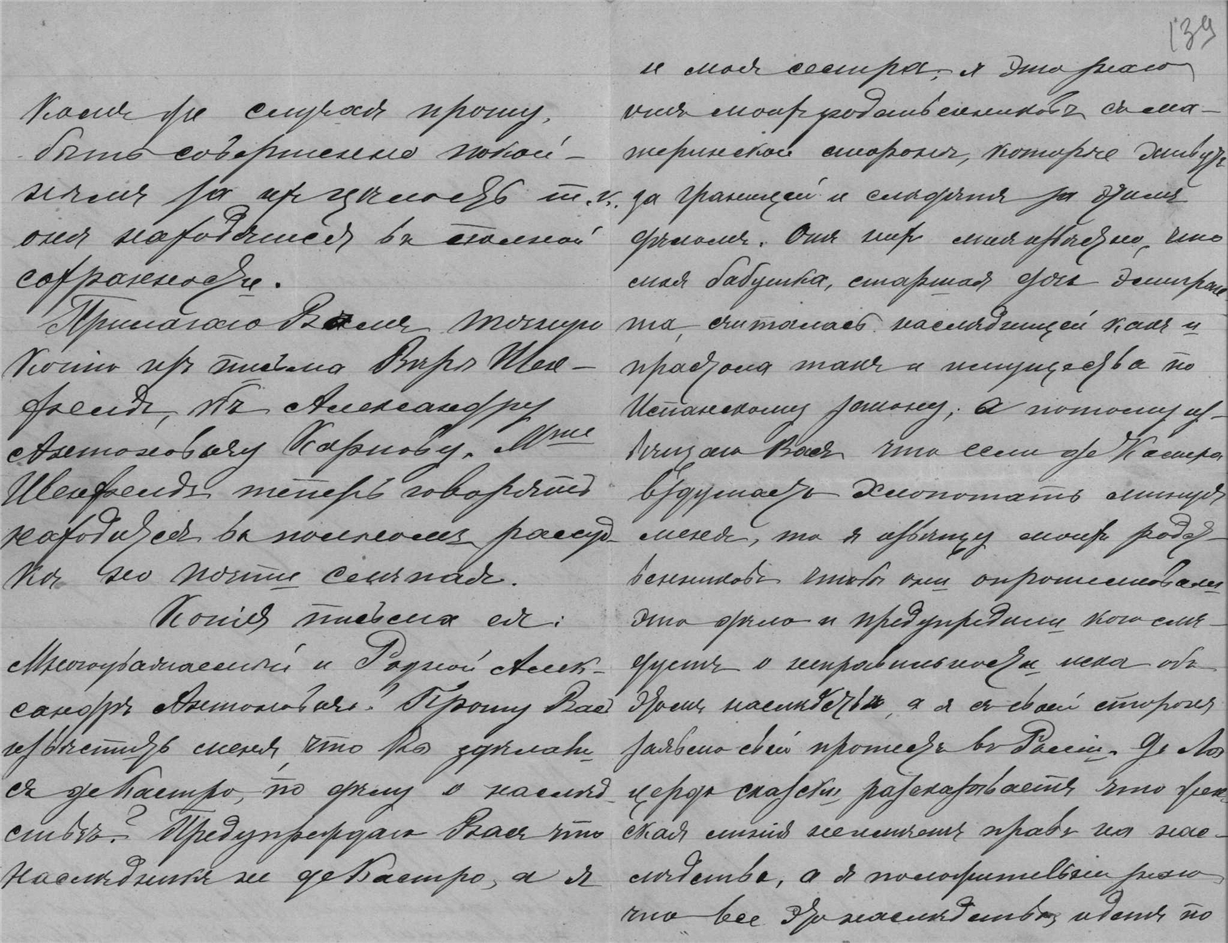 каме же случая прошу,
быть совершенно покой-
нымъ за их цѣлость т.к.
онѣ находятся въ полной
сохранности.
Прилагаю Вамъ точную
копію изъ письма Вѣры Шен-
фельдъ, къ Александру
Антоновичу Карпову. Mme
Шенфельдъ теперь говорятъ
находится въ полномъ разсуд-
кѣ но почти слѣпая.
Копія письма ея:
Многоуважаемый и Родной Алек-
сандръ Антоновичъ! Прошу Васъ
извѣстить меня, что Вы здѣлали
съ де Кастро, по дѣлу о наслѣд-
ствѣ? Предупреждаю Васъ что
наслѣдникъ не де Кастро, а я
139
и моя сестра, я это знаю
отъ моихъ родственниковъ съ ма-
теринской стороны, которые живутъ
за границей и слѣдятъ за этимъ
дѣломъ. Отъ них мнѣ извѣстно, что
моя бабушка, старшая дочь эмигран-
та считалась наслѣдницей какъ и
престола такъ и имущества по
Испанскому закону; а потому из-
вѣщаю Васъ что если де Кастро
вздумаетъ хлопотать минуя
меня, то я извѣщу моихъ родст-
венниковъ чтобъ они опротестовали
это дѣло и предупредили кого слѣ-
дуетъ о неправильности иска объ
этомъ наслѣдствѣ, а я съ своей стороны
заявлю свой протестъ въ Россіи. Де Ла
Церда сказки разсказываетъ что жен-
ская линія не имѣетъ правъ на нас-
лѣдство, а я положительно знаю
что все это наслѣдство идетъ по